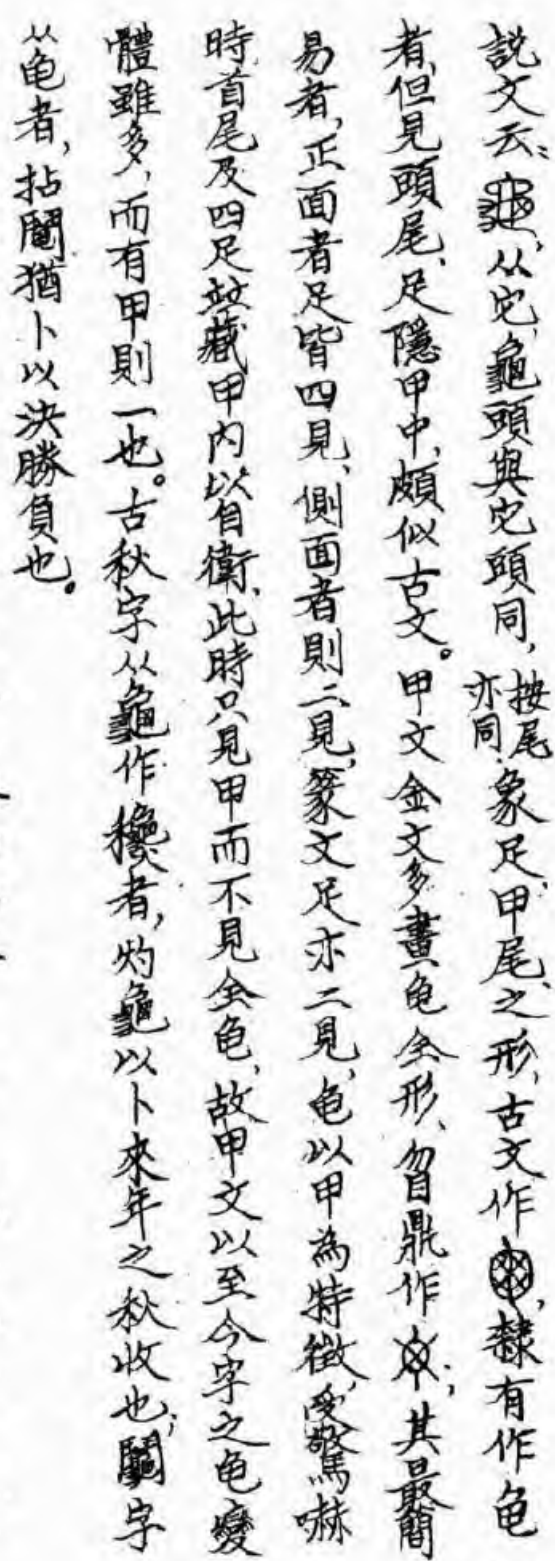 説文云：龜，从它，龜頭與它頭同，按尾亦同。象足甲尾之形，古文作，隸有作龟
者，但見頭尾、足隱甲中，頗似古文。甲文金文多畫龟全形、曶鼎作；其最簡
易者，正面者足皆四見、側面者則二見，篆文足亦二見，龟以甲為特徵，受驚嚇
時首尾及四足竝藏甲内以自衛，此時只見甲而不見全龟，故甲文以至今字之龟變
體雖多，而有甲則一也。古秋字从龜作龝者，灼龜以卜來年之秋收也；鬮字
从龟者，拈鬮猶卜以決勝負也。